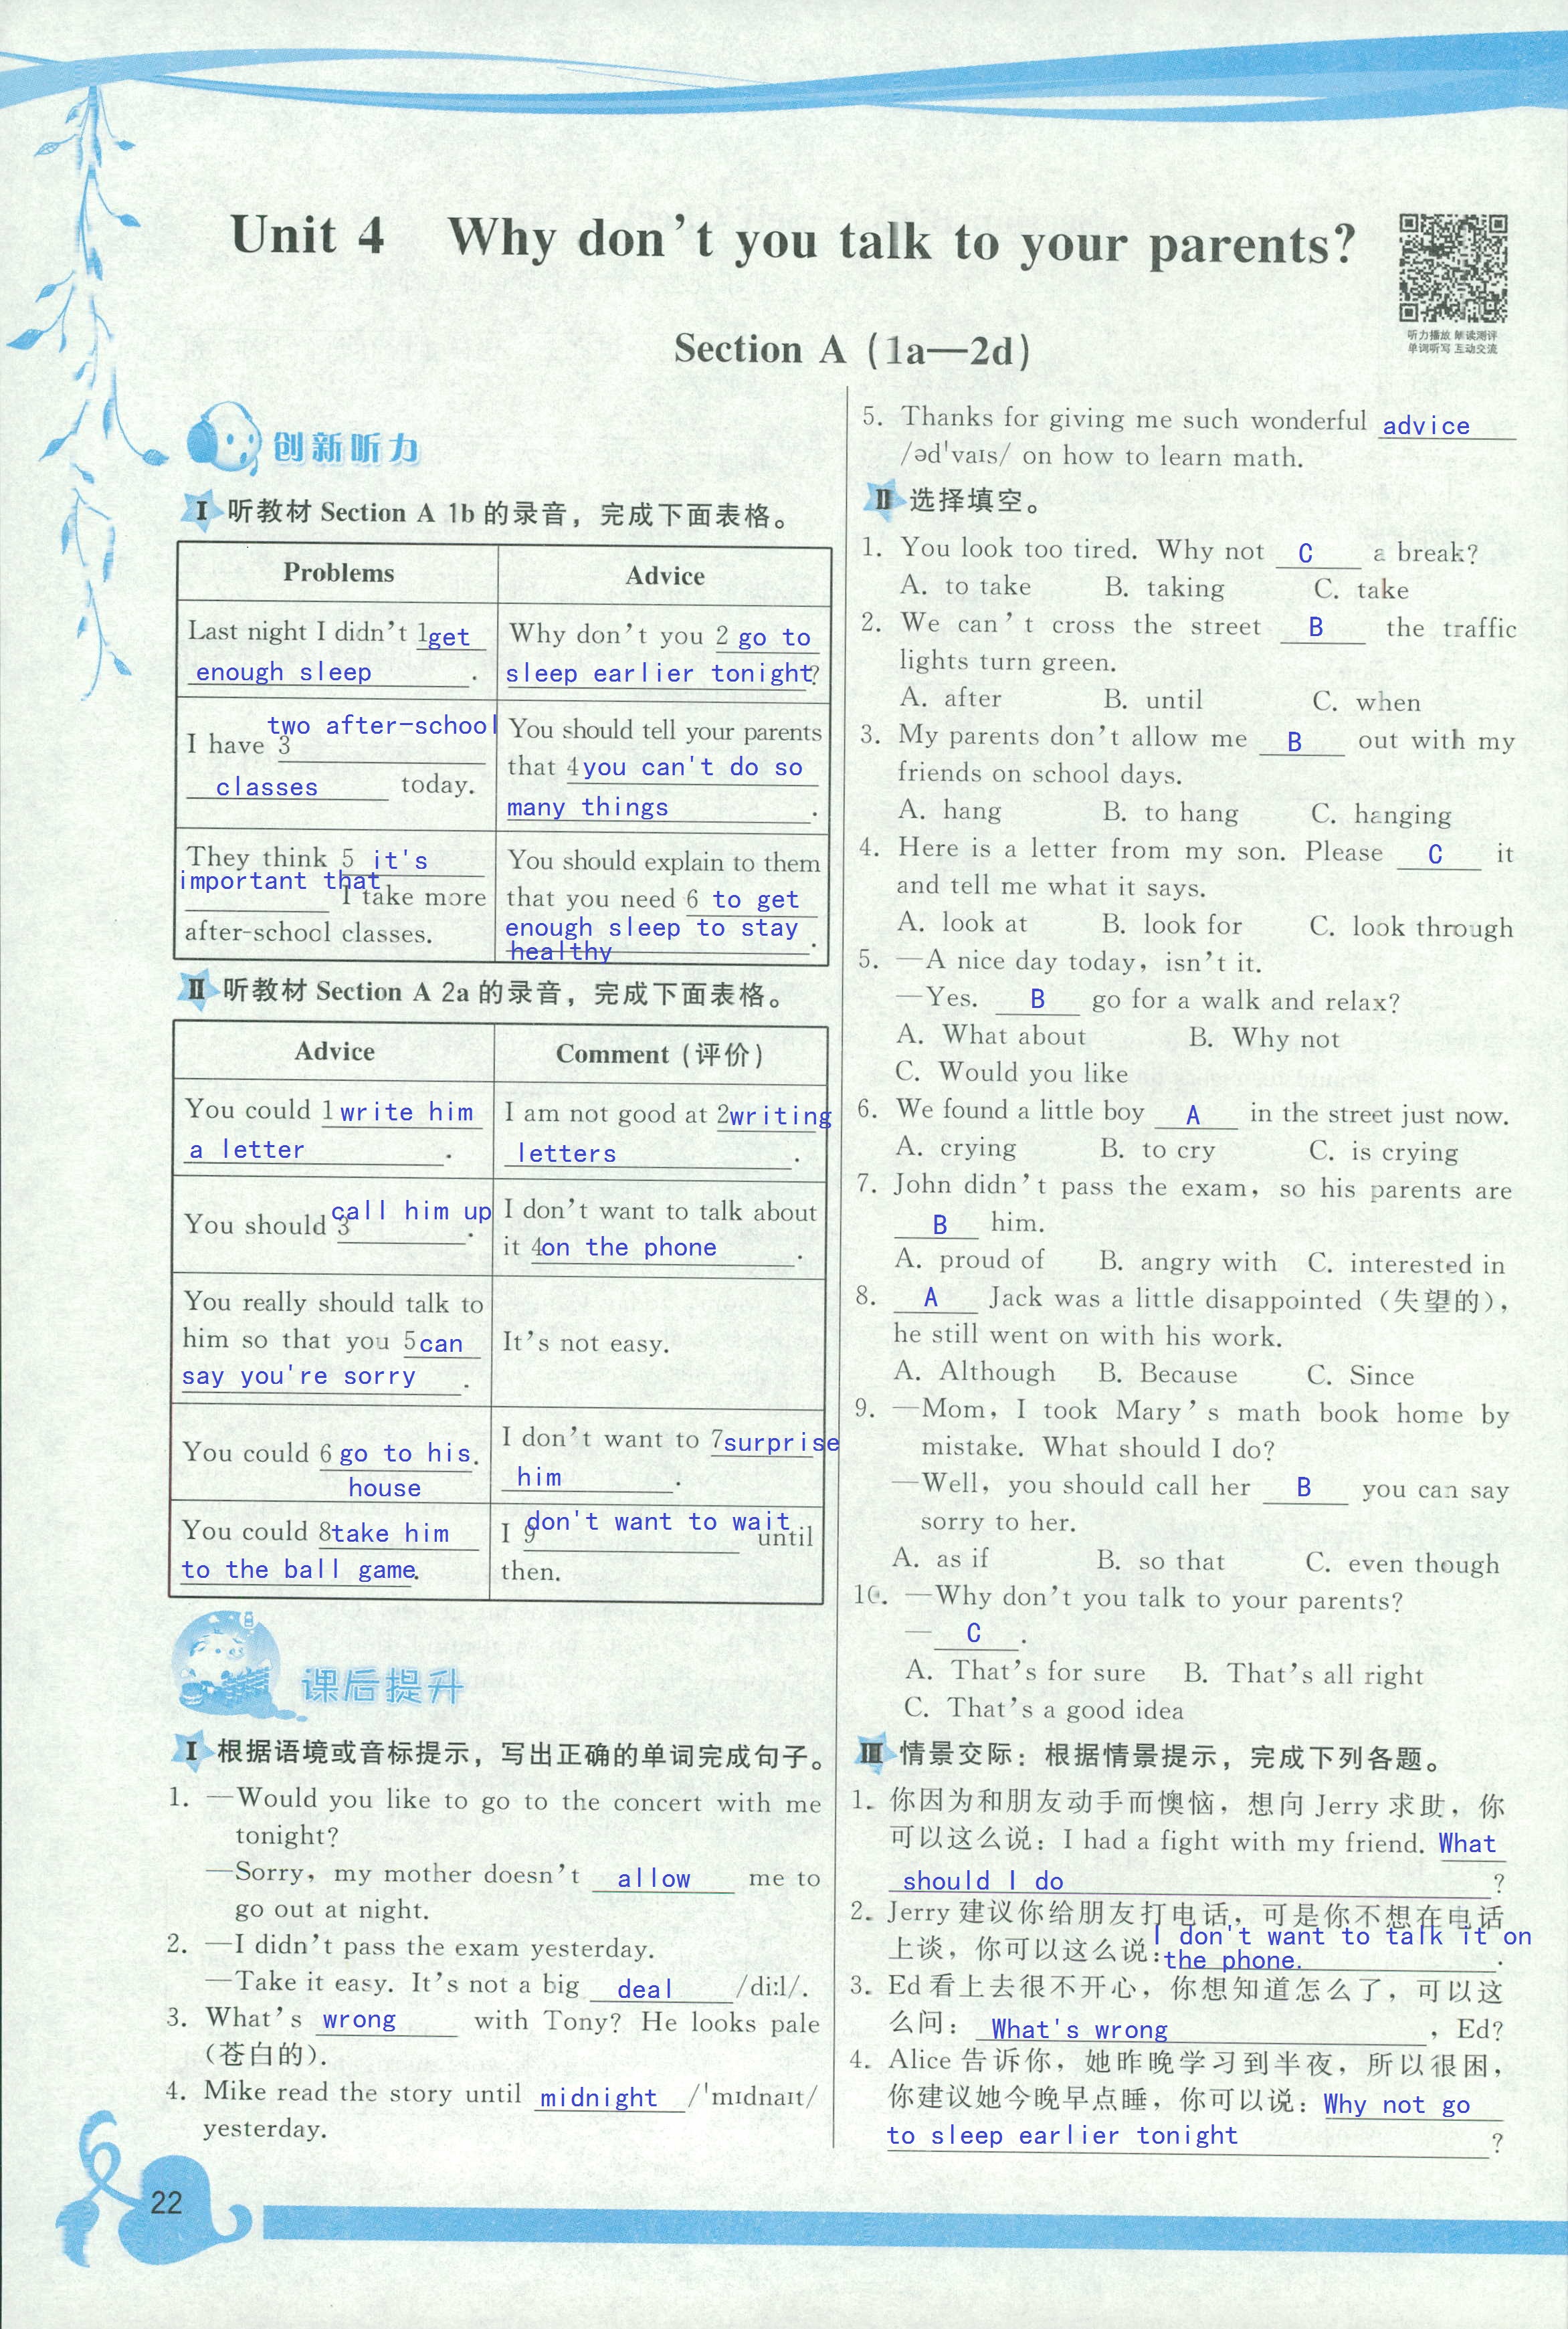 Unit 4 Why don't you talk to your parents?
听力播放 朗读测评
单词听写 互动交流
Section A (1a—2d)
创新听力
I 听教材 Section A 1b 的录音，完成下面表格。
Problems Advice
Last night I didn't 1 get
enough sleep .
Why don't you 2 go to
sleep earlier tonight?
I have 3 two after-school
classes today.
You should tell your parents
that 4 you can't do so
many things .
They think 5 it's
important that I take more
after-school classes.
You should explain to them
that you need 6 to get
enough sleep to stay
healthy .
II 听教材 Section A 2a 的录音，完成下面表格。
Advice Comment (评价)
You could 1 write him
a letter .
I am not good at 2 writing
letters .
You should 3 call him up .
I don't want to talk about
it 4 on the phone .
You really should talk to
him so that you 5 can
say you're sorry .
It's not easy.
You could 6 go to his .
house
I don't want to 7 surprise
him .
You could 8 take him
to the ball game.
I 9 don't want to wait until
then.
课后提升
I 根据语境或音标提示，写出正确的单词完成句子。
1. —Would you like to go to the concert with me
tonight?
—Sorry, my mother doesn't allow me to
go out at night.
2. —I didn't pass the exam yesterday.
—Take it easy. It's not a big deal /diːl/.
3. What's wrong with Tony? He looks pale
(苍白的).
4. Mike read the story until midnight /ˈmɪdnaɪt/
yesterday.
5. Thanks for giving me such wonderful advice
/ədˈvaɪs/ on how to learn math.
II 选择填空。
1. You look too tired. Why not C a break?
A. to take B. taking C. take
2. We can't cross the street B the traffic
lights turn green.
A. after B. until C. when
3. My parents don't allow me B out with my
friends on school days.
A. hang B. to hang C. hanging
4. Here is a letter from my son. Please C it
and tell me what it says.
A. look at B. look for C. look through
5. —A nice day today, isn't it.
—Yes. B go for a walk and relax?
A. What about B. Why not
C. Would you like
6. We found a little boy A in the street just now.
A. crying B. to cry C. is crying
7. John didn't pass the exam, so his parents are
B him.
A. proud of B. angry with C. interested in
8. A Jack was a little disappointed (失望的),
he still went on with his work.
A. Although B. Because C. Since
9. —Mom, I took Mary's math book home by
mistake. What should I do?
—Well, you should call her B you can say
sorry to her.
A. as if B. so that C. even though
10. —Why don't you talk to your parents?
— C .
A. That's for sure B. That's all right
C. That's a good idea
III 情景交际：根据情景提示，完成下列各题。
1. 你因为和朋友动手而懊恼，想向 Jerry 求助，你
可以这么说：I had a fight with my friend. What
should I do ?
2. Jerry 建议你给朋友打电话，可是你不想在电话
上谈，你可以这么说：I don't want to talk it on
the phone. .
3. Ed 看上去很不开心，你想知道怎么了，可以这
么问： What's wrong , Ed?
4. Alice 告诉你，她昨晚学习到半夜，所以很困，
你建议她今晚早点睡，你可以说：Why not go
to sleep earlier tonight ?
22